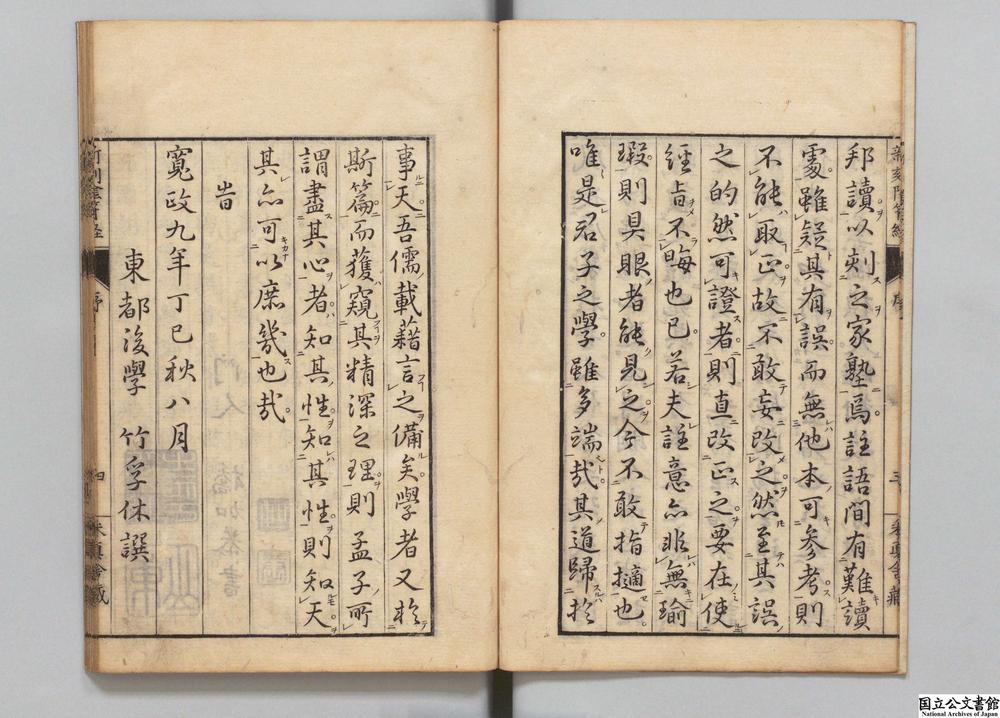 邦讀以刻之家塾焉註語間有難讀
處雖疑其有誤而無他本可參考則
不能取正故不敢妄改之然至其誤
之的然可證者則直改正之要在使
經旨不晦也已若夫註意亦非無瑜
瑕則具眼者能見之今不敢指擿也
唯是君子之學雖多端哉其道歸於
事天吾儒載藉言之備矣學者又於
斯篇而獲窺其精深之理則孟子所
謂盡其心者知其性知其性則知天
其亦可以庶幾也哉
旹
寬政九年丁巳秋八月
東都後學 竹孚休譔
序
四
國立公文書館
National Archives of Japan